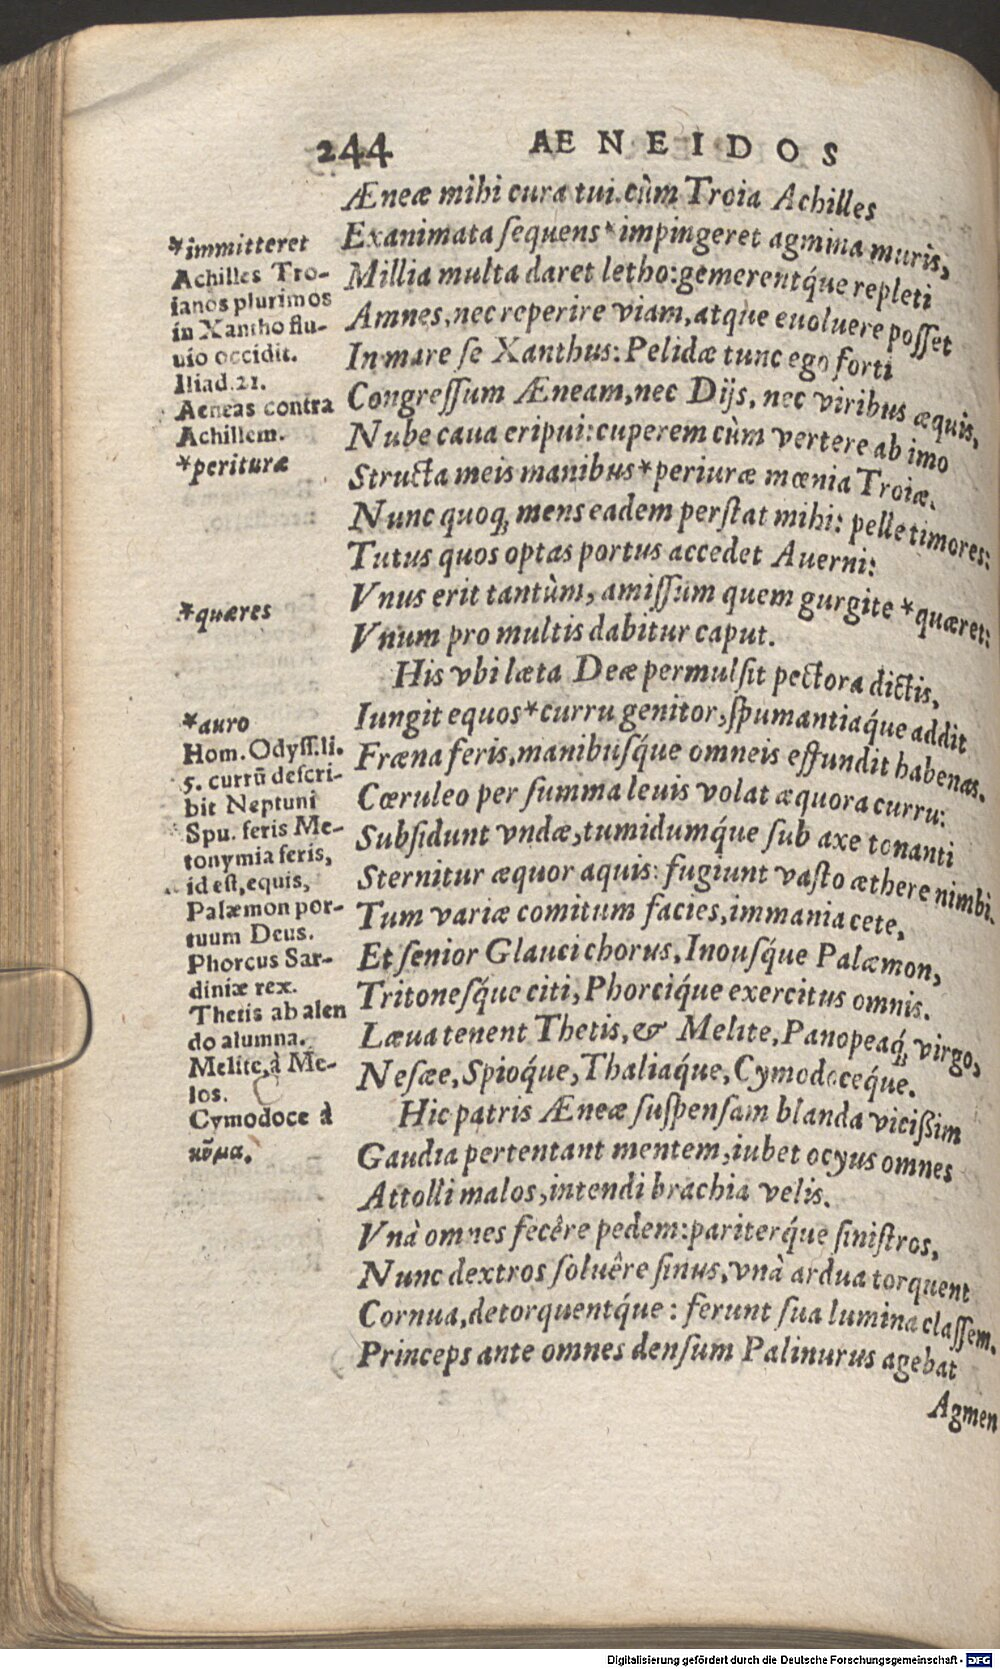 244 AENEIDOS
Æneæ mihi cura tui. cùm Troia Achilles
Exanimata ſequens *impingeret agmina muris,
Millia multa daret letho: gemerentq́ue repleti
Amnes, nec reperire viam, atque euoluere poſſet
In mare ſe Xanthus: Pelidæ tunc ego forti
Congreſſum Æneam, nec Dijs, nec viribus æquis,
Nube caua eripui: cuperem cùm vertere ab imo
Structa meis manibus *periuræ mœnia Troiæ.
Nunc quoq; mens eadem perſtat mihi: pelle timores:
Tutus quos optas portus accedet Auerni:
Vnus erit tantùm, amiſſum quem gurgite *quæret:
Vnum pro multis dabitur caput.
His vbi læta Deæ permulſit pectora dictis,
Iungit equos *curru genitor, ſpumantiaq́ue addit
Fræna feris, manibuſq́ue omneis effundit habenas.
Cœruleo per ſumma leuis volat æquora curru:
Subſidunt vndæ, tumidumq́ue ſub axe tonanti
Sternitur æquor aquis: fugiunt vaſto æthere nimbi.
Tum variæ comitum facies, immania cete,
Et ſenior Glauci chorus, Inouſq́ue Palæmon,
Tritoneſq́ue citi, Phorciq́ue exercitus omnis.
Læua tenent Thetis, & Melite, Panopeaq; virgo,
Neſæe, Spioq́ue, Thaliaq́ue, Cymodoceq́ue.
Hic patris Æneæ ſuſpenſam blanda viciſſim
Gaudia pertentant mentem, iubet ocyus omnes
Attolli malos, intendi brachia velis.
Vnà omnes fecêre pedem: pariterq́ue ſiniſtros,
Nunc dextros ſoluêre ſinus, vnà ardua torquent
Cornua, detorquentq́ue: ferunt ſua lumina claſſem.
Princeps ante omnes denſum Palinurus agebat
Agmen
*immitteret
Achilles Tro-
ianos plurimos
in Xantho flu-
uio occidit.
Iliad.21.
Aeneas contra
Achillem.
*perituræ
*quæres
*auro
Hom. Odyſſ. li.
5. currū deſcri-
bit Neptuni
Spu. feris Me-
tonymia feris,
id eſt, equis,
Palæmon por-
tuum Deus.
Phorcus Sar-
diniæ rex.
Thetis ab alen
do alumna.
Melite, à Me-
los.
Cymodoce à
κῦμα.
Digitalisierung gefördert durch die Deutsche Forschungsgemeinschaft - DFG